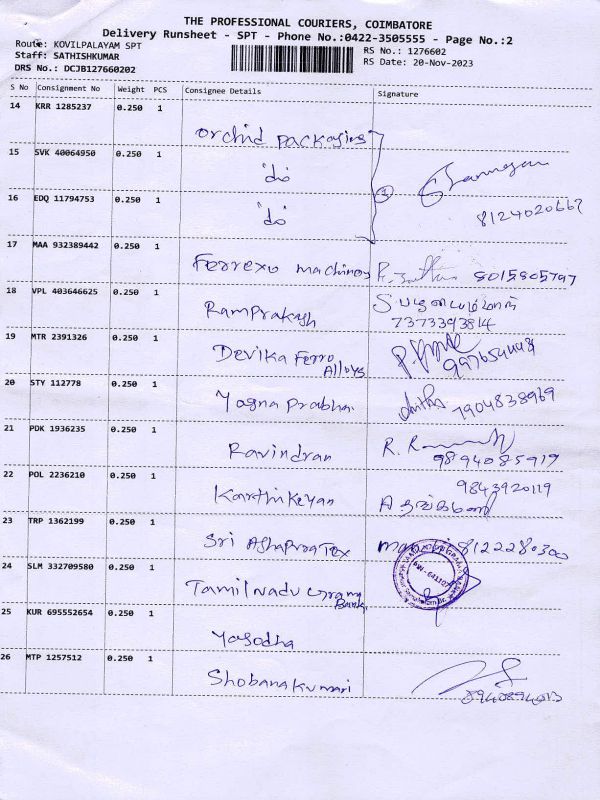 THE PROFESSIONAL COURIERS, COIMBATORE
Delivery Runsheet - SPT - Phone No.:0422-3505555 - Page No.:2
Route: KOVILPALAYAM SPT
Staff: SATHISHKUMAR
DRS No.: DCJB127660202
RS No.: 1276602
RS Date: 20-Nov-2023
S No Consignment No Weight PCS Consignee Details Signature
14 KRR 1285237 0.250 1
Orchid packaging
15 SVK 40064950 0.250 1
"do
16 EDQ 11794753 0.250 1
"do
3
8124020667
17 MAA 932389442 0.250 1
Ferrexo machines 8015805797
18 VPL 403646625 0.250 1
Ramprakash
7373393814
19 MTR 2391326 0.250 1
Devika Ferro
Alloys
20 STY 112778 0.250 1
Yagna prabha 7904838969
21 PDK 1936235 0.250 1
Ravindran
9894085919
22 POL 2236210 0.250 1
9843920119
Karthikeyan
23 TRP 1362199 0.250 1
Sri AshapuraTex 8122280300
24 SLM 332709580 0.250 1
Tamil Nadu Grama
Bank
25 KUR 695552654 0.250 1
Yasodha
26 MTP 1257512 0.250 1
Shobanakumari